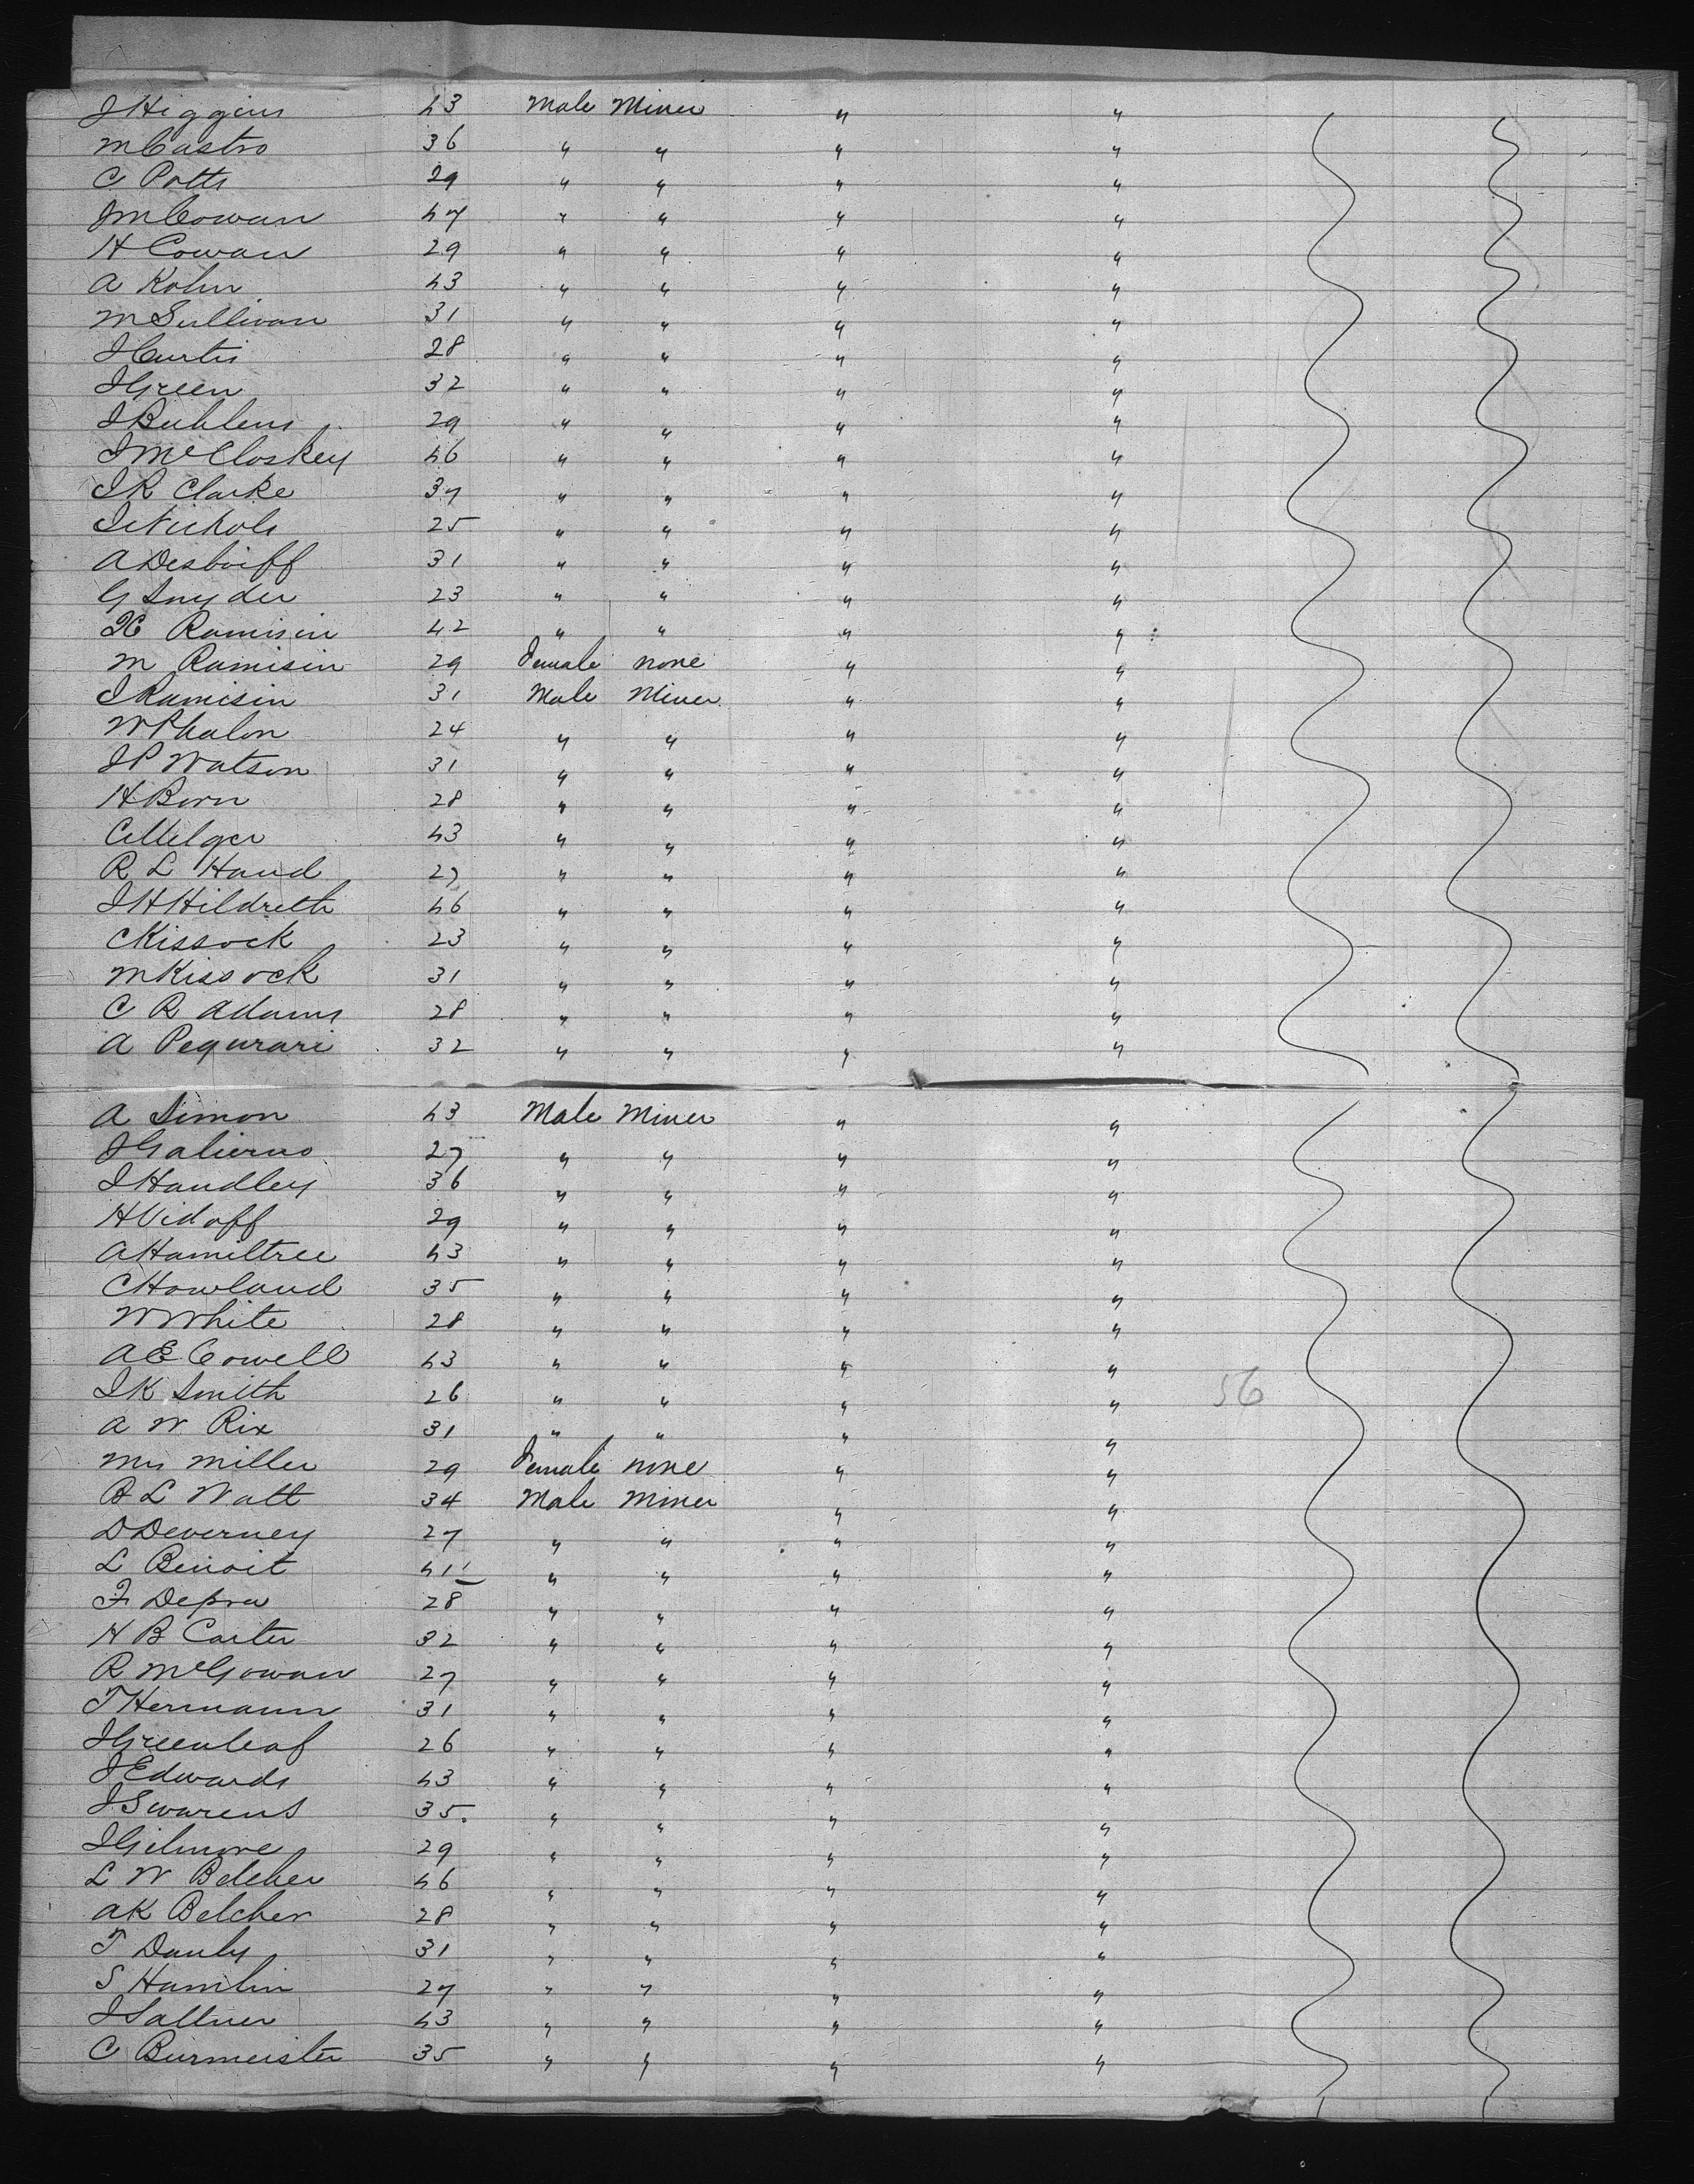 J Higgins 43 Male Miner " "
M Castro 36 " " " "
C Potts 29 " " " "
J M Cowan 47 " " " "
H Cowan 29 " " " "
A Kohn 43 " " " "
M Sullivan 31 " " " "
J Curtis 28 " " " "
J Green 32 " " " "
J Buhlens 29 " " " "
J McCloskey 46 " " " "
J R Clarke 37 " " " "
J Nichols 25 " " " "
A Desboiff 31 " " " "
G Snyder 23 " " " "
Ramisin 42 " " " "
M Ramisin 29 Female none " "
J Ramisin 31 Male Miner " "
W Phalon 24 " " " "
J P Watson 31 " " " "
H Born 28 " " " "
C Melger 43 " " " "
R L Hand 27 " " " "
J H Hildreth 46 " " " "
C Kissock 23 " " " "
M Kissock 31 " " " "
C R Adams 28 " " " "
A Pegurari 32 " " " "
A Simon 43 Male Miner " "
J Galierno 27 " " " "
J Handley 36 " " " "
H Vidoff 29 " " " "
A Hamiltree 43 " " " "
C Howland 35 " " " "
W White 28 " " " "
A E Cowell 43 " " " "
J K Smith 26 " " " " 56
A W Rix 31 " " " "
Mrs Miller 29 Female none " "
B L Watt 34 Male Miner " "
D Deverney 27 " " " "
L Benoit 41 " " " "
F Depra 28 " " " "
H B Carter 32 " " " "
R McGowan 27 " " " "
T Hermann 31 " " " "
J Greenleaf 26 " " " "
J Edwards 43 " " " "
J Swarens 35 " " " "
J Gilmore 29 " " " "
L W Belcher 46 " " " "
A K Belcher 28 " " " "
T Danly 31 " " " "
S Hamlin 27 " " " "
J Saltner 43 " " " "
C Burmeister 35 " " " "